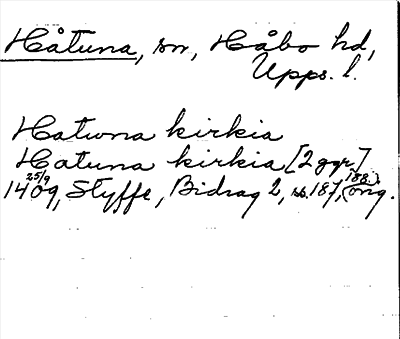 Håtuna, sn, Håbo hd,
Upps. l.
Hatwna kirkia
Hatuna kirkia [2 ggr]
14 25/9 09, Styffe, Bidrag 2, s. 187, 188. orig.